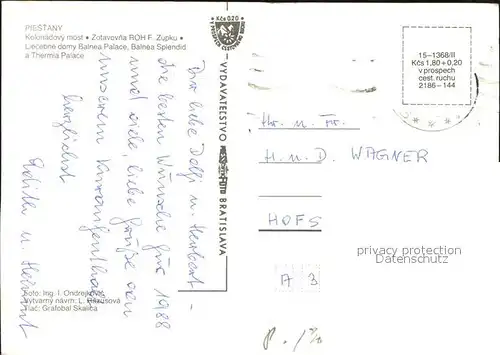 PIEŠŤANY
Kolonádový most • Zotavovňa ROH F. Zupku •
Liečebné domy Balnea Palace, Balnea Splendid
a Thermia Palace
Ihr liebe Dolfi u. Herbert -
die besten Wünsche für 1988
und viele, liebe Grüße von
unserem Kuraufenthalt
herzlichst
Edith u. Helmut
Foto: Ing. I. Ondrejk
Výtvarný návrh: L. Rázusová
Tlač: Grafobal Skalica
Kčs 0,20
VYDAVATEĽSTVO
BRATISLAVA
15-1368/II
Kčs 1,80 + 0,20
v prospech
cest. ruchu
2186-144
Hr. u. Fr.
H. u. D. WAGNER
HOFS
A 3
privacy protection
by Delcampe.net